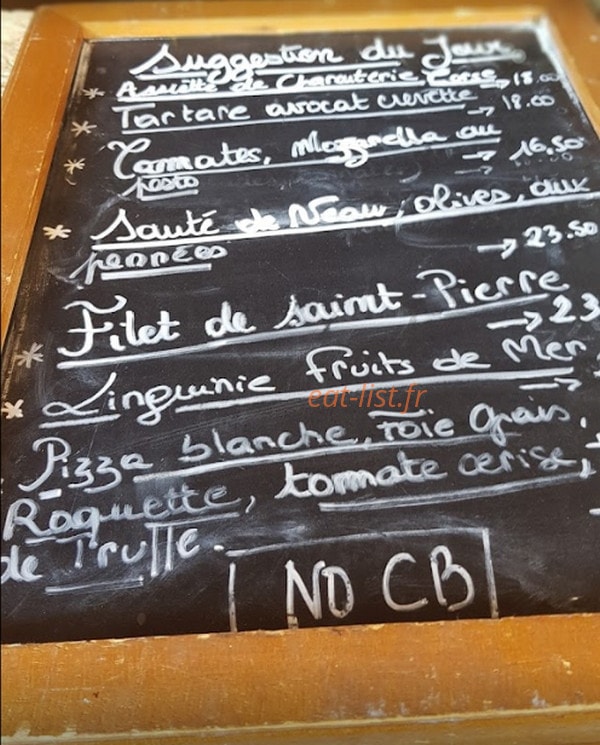 Suggestion du Jour
* Assiette de Charcuterie Corse → 18.00
* Tartare avocat crevette → 18.00
* Tomates, Mozzarella au
pesto → 16,50
* Sauté de Veau, olives, aux
pennées → 23.50
* Filet de saint-Pierre
→ 23
* Linguinie fruits de Mer
→
eat-list.fr
Pizza blanche, foie Grais,
Roquette, tomate cerise,
de Truffe.
NO CB